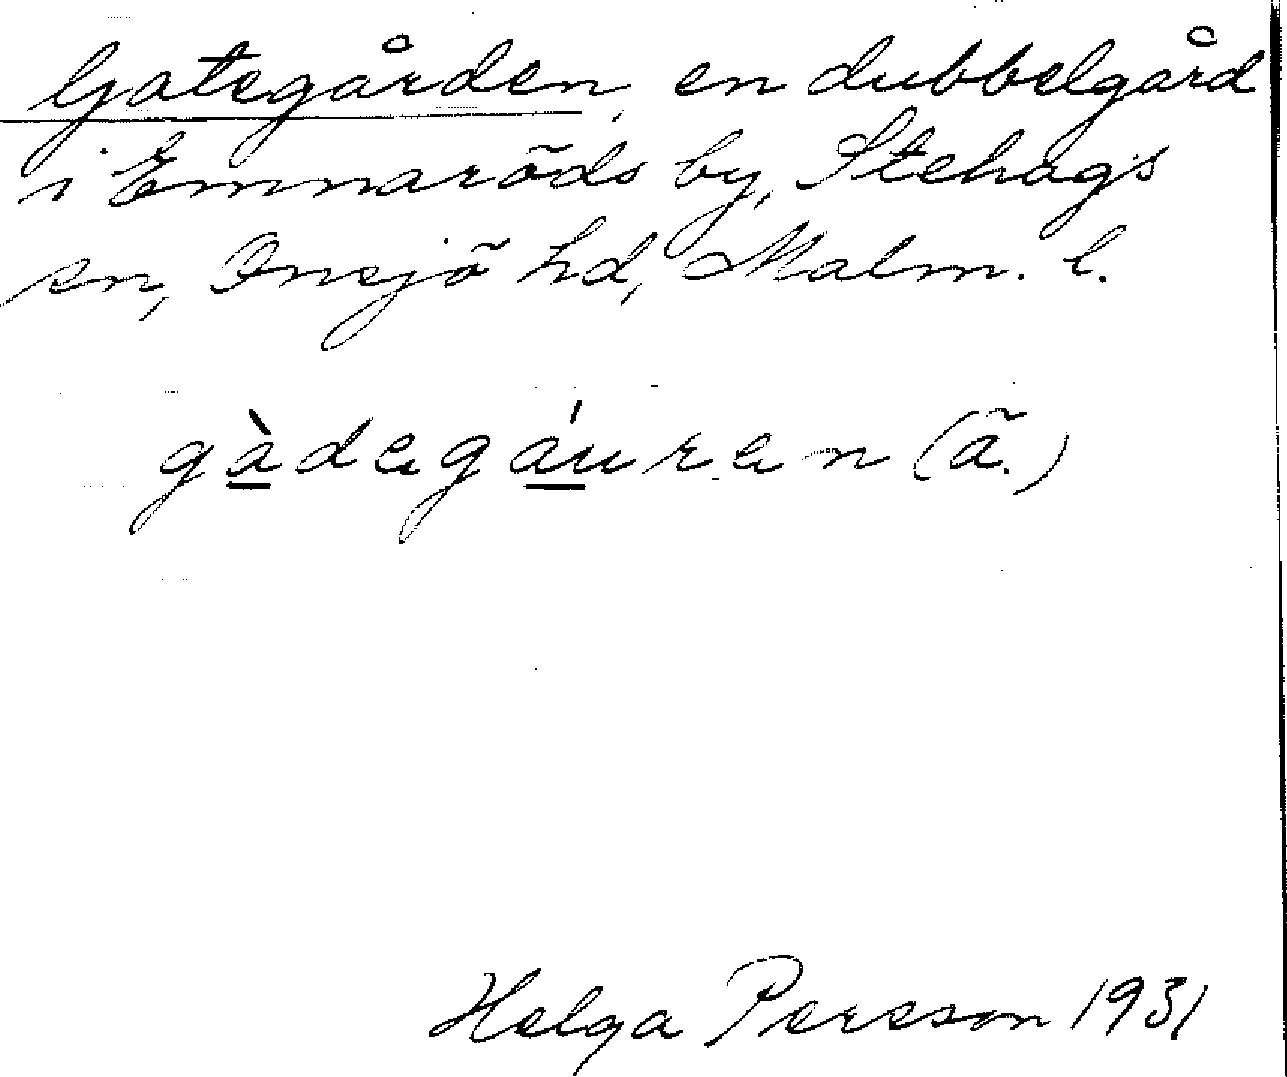 Gategården, en dubbelgård
i Emmaröds by, Stehags
sn, Onsjö hd, Malm. l.
gàdegáuren (ã.)
Helga Persson 1931